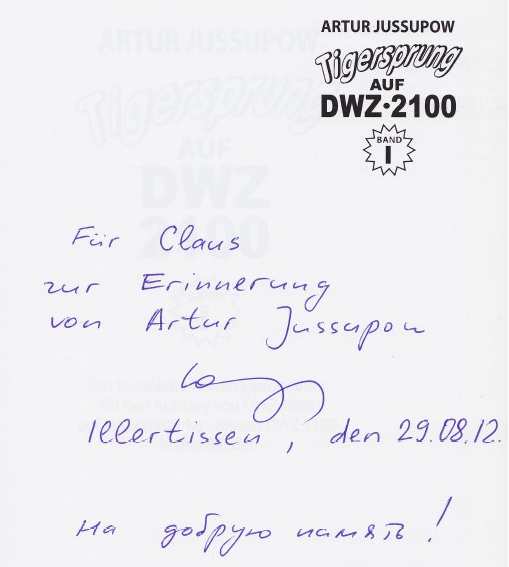 ARTUR JUSSUPOW
Tigersprung
AUF
DWZ·2100
BAND
I
Für Claus
zur Erinnerung
von Artur Jussupow
Illertissen, den 29.08.12.
на добрую память!